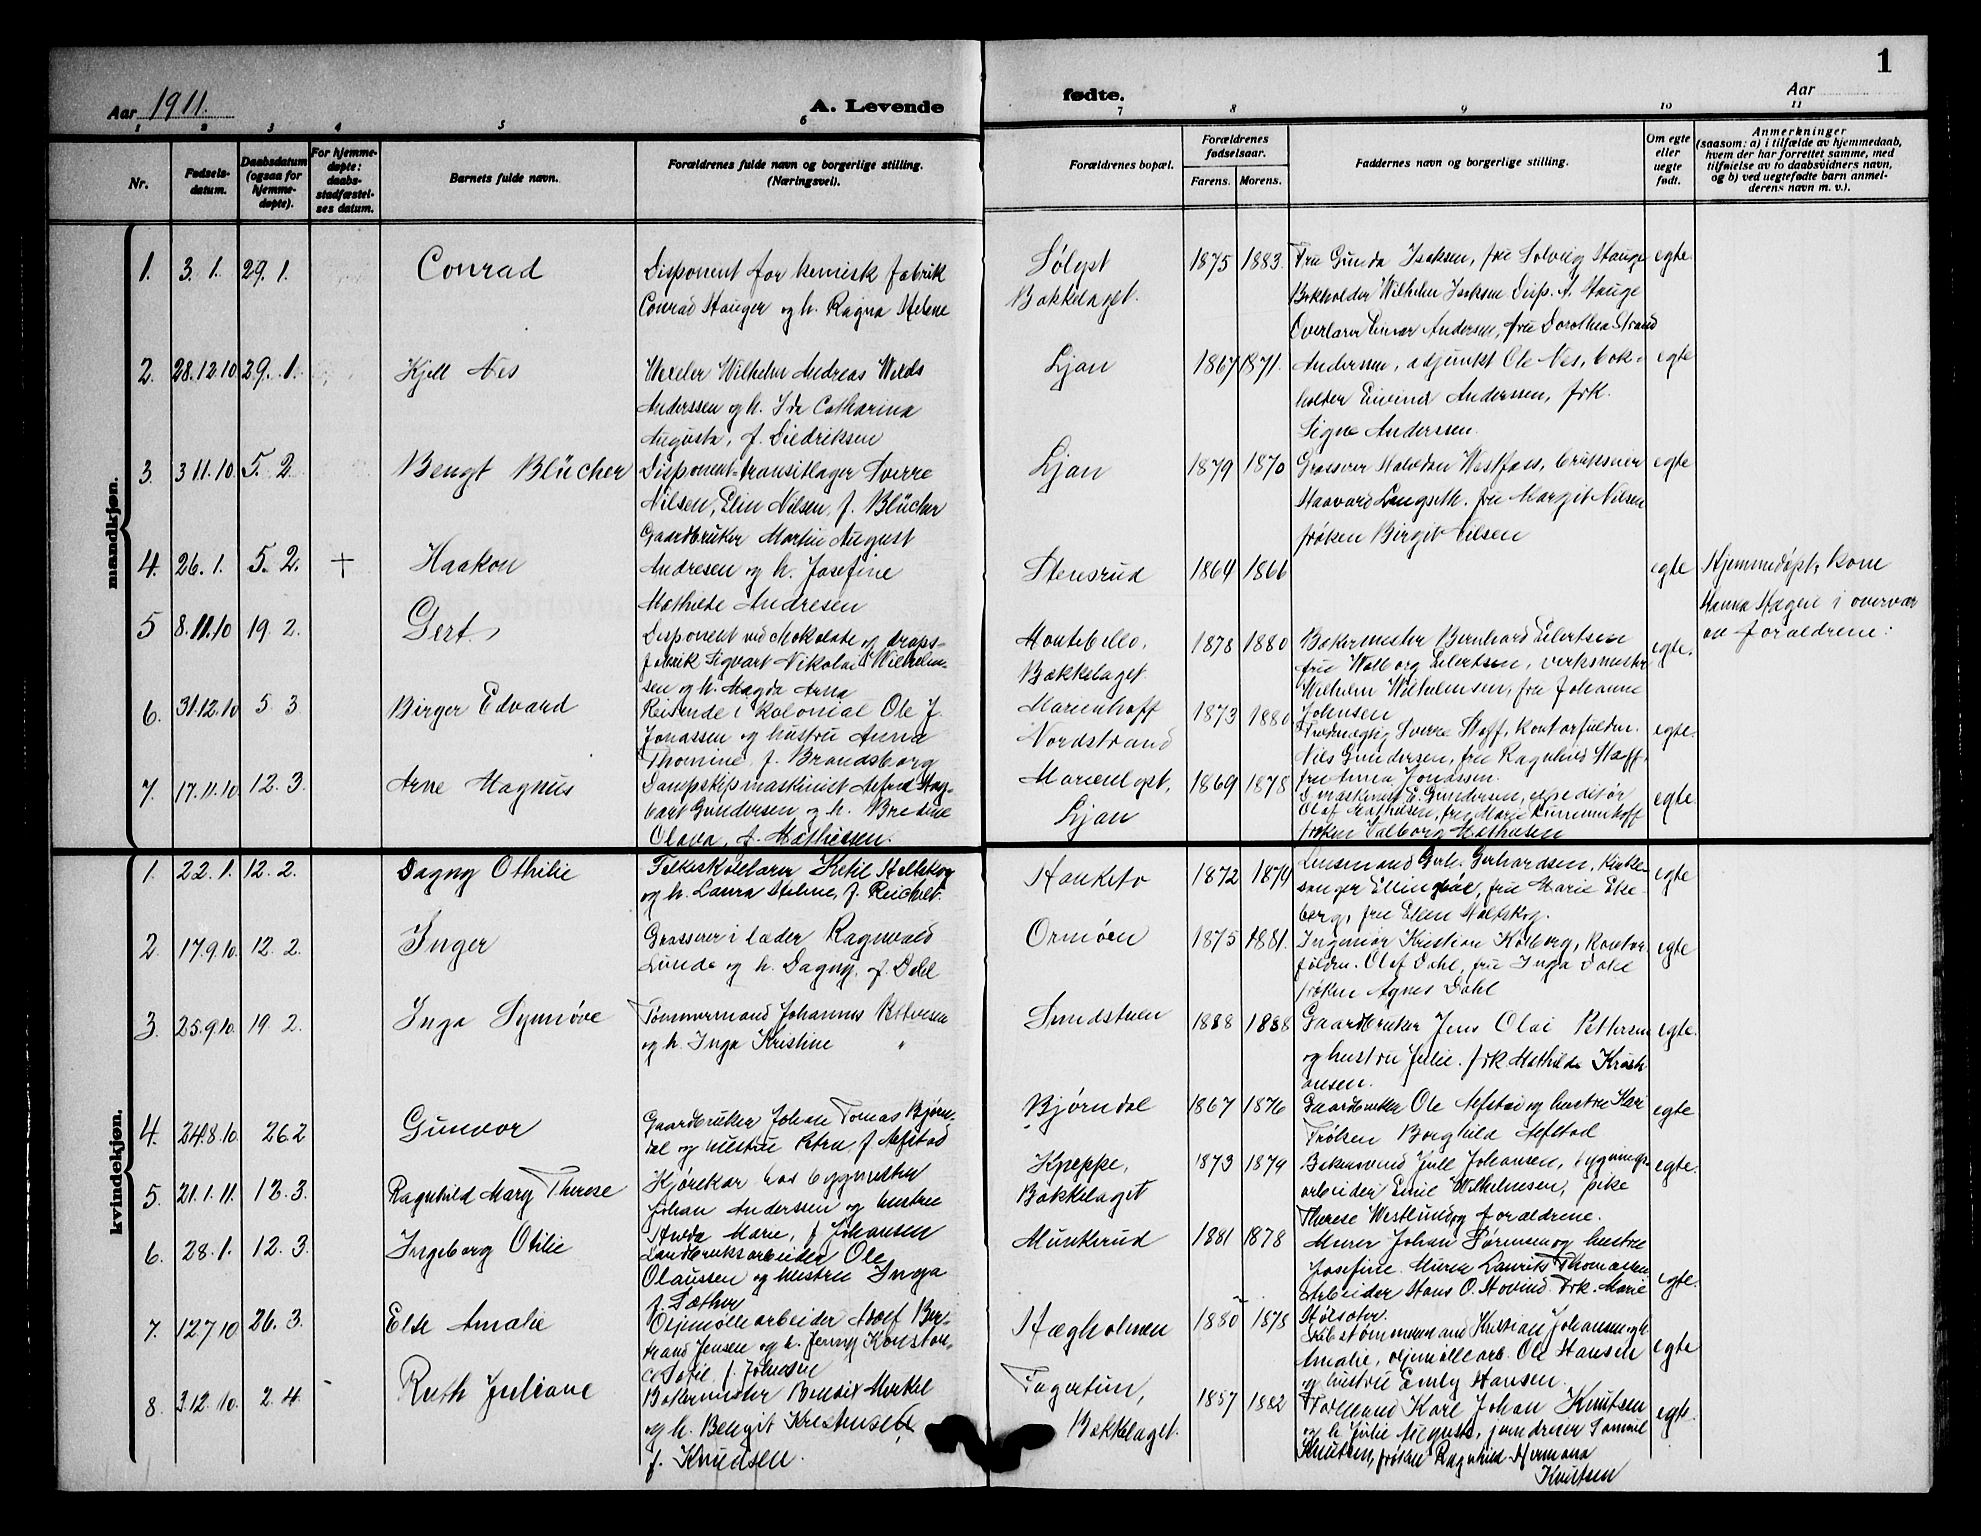 1
Aar 1911.
A. Levende
fødte.
Aar
1 2 3 4 5 6 7 8 9 10 11
Nr.
Fødsels-
datum.
Daabsdatum
(ogsaa for
hjemme-
døpte).
For hjemme-
døpte:
daabs-
stadfæstel-
ses datum.
Barnets fulde navn.
Forældrenes fulde navn og borgerlige stilling.
(Næringsvei).
Forældrenes bopæl.
Forældrenes
fødselsaar.
Farens. Morens.
Faddernes navn og borgerlige stilling.
Om egte
eller
uegte
født.
Anmerkninger
(saasom: a) i tilfælde av hjemmedaab,
hvem der har forrettet samme, med
tilføielse av to daabsvidners navn,
og b) ved uegtefødte barn anmel-
derens navn m. v.).
mandkjøn.
1. 3. 1. 29. 1. Conrad
Disponent for kemisk fabrik
Conrad Hauger og h. Ragna Helene
Sølyst
Bækkelaget.
1875 1883.
Fru Gunda Isaksen, fru Solveig Hauge
Bokholder Wilhelm Isaksen Disp. A. Hauge
Overlærer Einar Andersen, fru Dorothea Strand
egte
2. 28.12.10 29. 1. Kjell Nes
Wilhelm Andreas Welds
Anderssen og h. Ida Catharina
Augusta, f. Diedriksen
Ljan
1867 1871.
Anderssen, adjunkt Ole Nes, bok-
holder Eivind Anderssen, frk.
Signe Anderssen.
egte
3. 3 11.10 5. 2. Bengt Blücher
Disponent transitlager Sverre
Nilsen, Elin Nilsen, f. Blücher
Ljan
1879 1870
Grosserer Halvdan
Haavard Langseth. fru Margit Nilsen
frøken Birgit Nilsen
egte
4. 26. 1. 5. 2. + Haakon
Gaardbruker Martin August
Andresen og h. Josefine
Mathilde Andresen
Stensrud
1864 1866
egte
Hjemmedøpt, kone
Hanna Hagen i overvær
av forældrene.
5 8.11.10 19. 2. Gert
Disponent ved chokolade og drops-
fabrik Sigvart Nikolai Wilhelm-
sen og h. Magda Anna
Montebello,
Bækkelaget
1878 1880
Bakermester Bernhard Eilertsen
fru Walborg Eilertsen, verksmester
Wilhelm Wilhelmsen, fru Johanne
Johnsen
egte.
6. 31.12.10 5 3 Birger Edvard
Reisende i kolonial Ole J.
Jonassen og hustru Anna
Thomine, f. Brandsborg
Marienhoff
Nordstrand
1873 1880.
Sverre Hoff, kontorfuldm.
Nils Gundersen, fru Ragnhild Hoff,
fru Anna Jonassen.
egte.
7. 17.11.10 12. 3. Arne Magnus
Dampskipmaskinist Alfred Hag-
bart Gundersen og h. Bredine
Olava, f. Mathiesen.
Marienlyst,
Ljan
1869 1878
Dmaskinist E. Gundersen, expeditør
Olaf Mathiesen, fru Marie
frøken Valborg Mathiesen
egte.
kvindekjøn.
1. 22. 1. 12. 2. Dagny Othilie
Folkeskolelærer Ketil Holtskog
og h. Laura Helene, f. Reichelt.
Hauketo
1872 1874
Lensmand Gerh. Gerhardsen, kirke-
sanger Ellingbøe, fru Marie Eke-
berg, fru Ellen Holtskog.
egte
2. 17.9.10. 12. 2 Inger
Grosserer i læder Ragnvald
Lunde og h. Dagny, f. Dahl
Ormøen
1875 1881.
Ingeniør Kristian Kolborg, kontor
fuldm. Olaf Dahl, fru Inga Dahl
frøken Agnes Dahl
egte
3. 25.9 10. 19. 2. Inga Synnøve
Tømmermand Johannes Pettersen
og h. Inga Kristine "
Sundstuen
1888 1888
Gaardbruker Jens Olai Pettersen
og hustru Julie. frk Mathilde Kristi
ansen.
egte.
4. 24.8.10. 26.2 Gunvor
Gaardbruker Johan Tomas Bjørn-
dal og hustru Petra, f. Aefstad
Bjørndal
1867 1876
Gaardbruker Ole Aefstad og hustru Kari
Frøken Borghild Aefstad
egte
5. 21.1.11. 12.3. Ragnhild Mary Therese
Kjørekar hos bygmester
Johan Anderssen og hustru
Hulda Marie, f Johansen
Kneppe,
Bækkelaget
1873 1879
Bakersvend Jull Johansen, bygnings-
arbeider Emil Wilhelmsen, pike
Therese Westlund og forældrene.
egte.
6. 28. 1. 12. 3. Ingeborg Otilie
Landbruksarbeider Ole
Olaussen og hustru Inga
f. Sæther
Munkerud
1881 1878
Murer Johan Sørensen og hustru
Josefine. Murer Laurits Thomassen
Arbeider Hans O. Hovind. Frk. Marie
Holsæter.
egte.
7. 12 7 10 26. 3. Else Amalie
Oljemøllearbeider Adolf Ber-
trand Jensen og h. Jenny Konstan-
ce Sofie f. Johnsen
Hægholmen
1880 1878
Kristian Johansen og h.
Amalie, oljemøllearb. Ole Hansen
og hustru Emly Hansen.
egte
8. 3.12.10. 2. 4. Ruth Juliane
Bakermester Benoix Merkel
og h. Bergit Kristensen,
f. Knudsen.
Fagertun,
Bækkelaget.
1857 1882
Karl Johan Knutsen
og h. Julie Auguste, Samuel
Knutsen, frøken Ragnhild Hermana
Knutsen
egte.